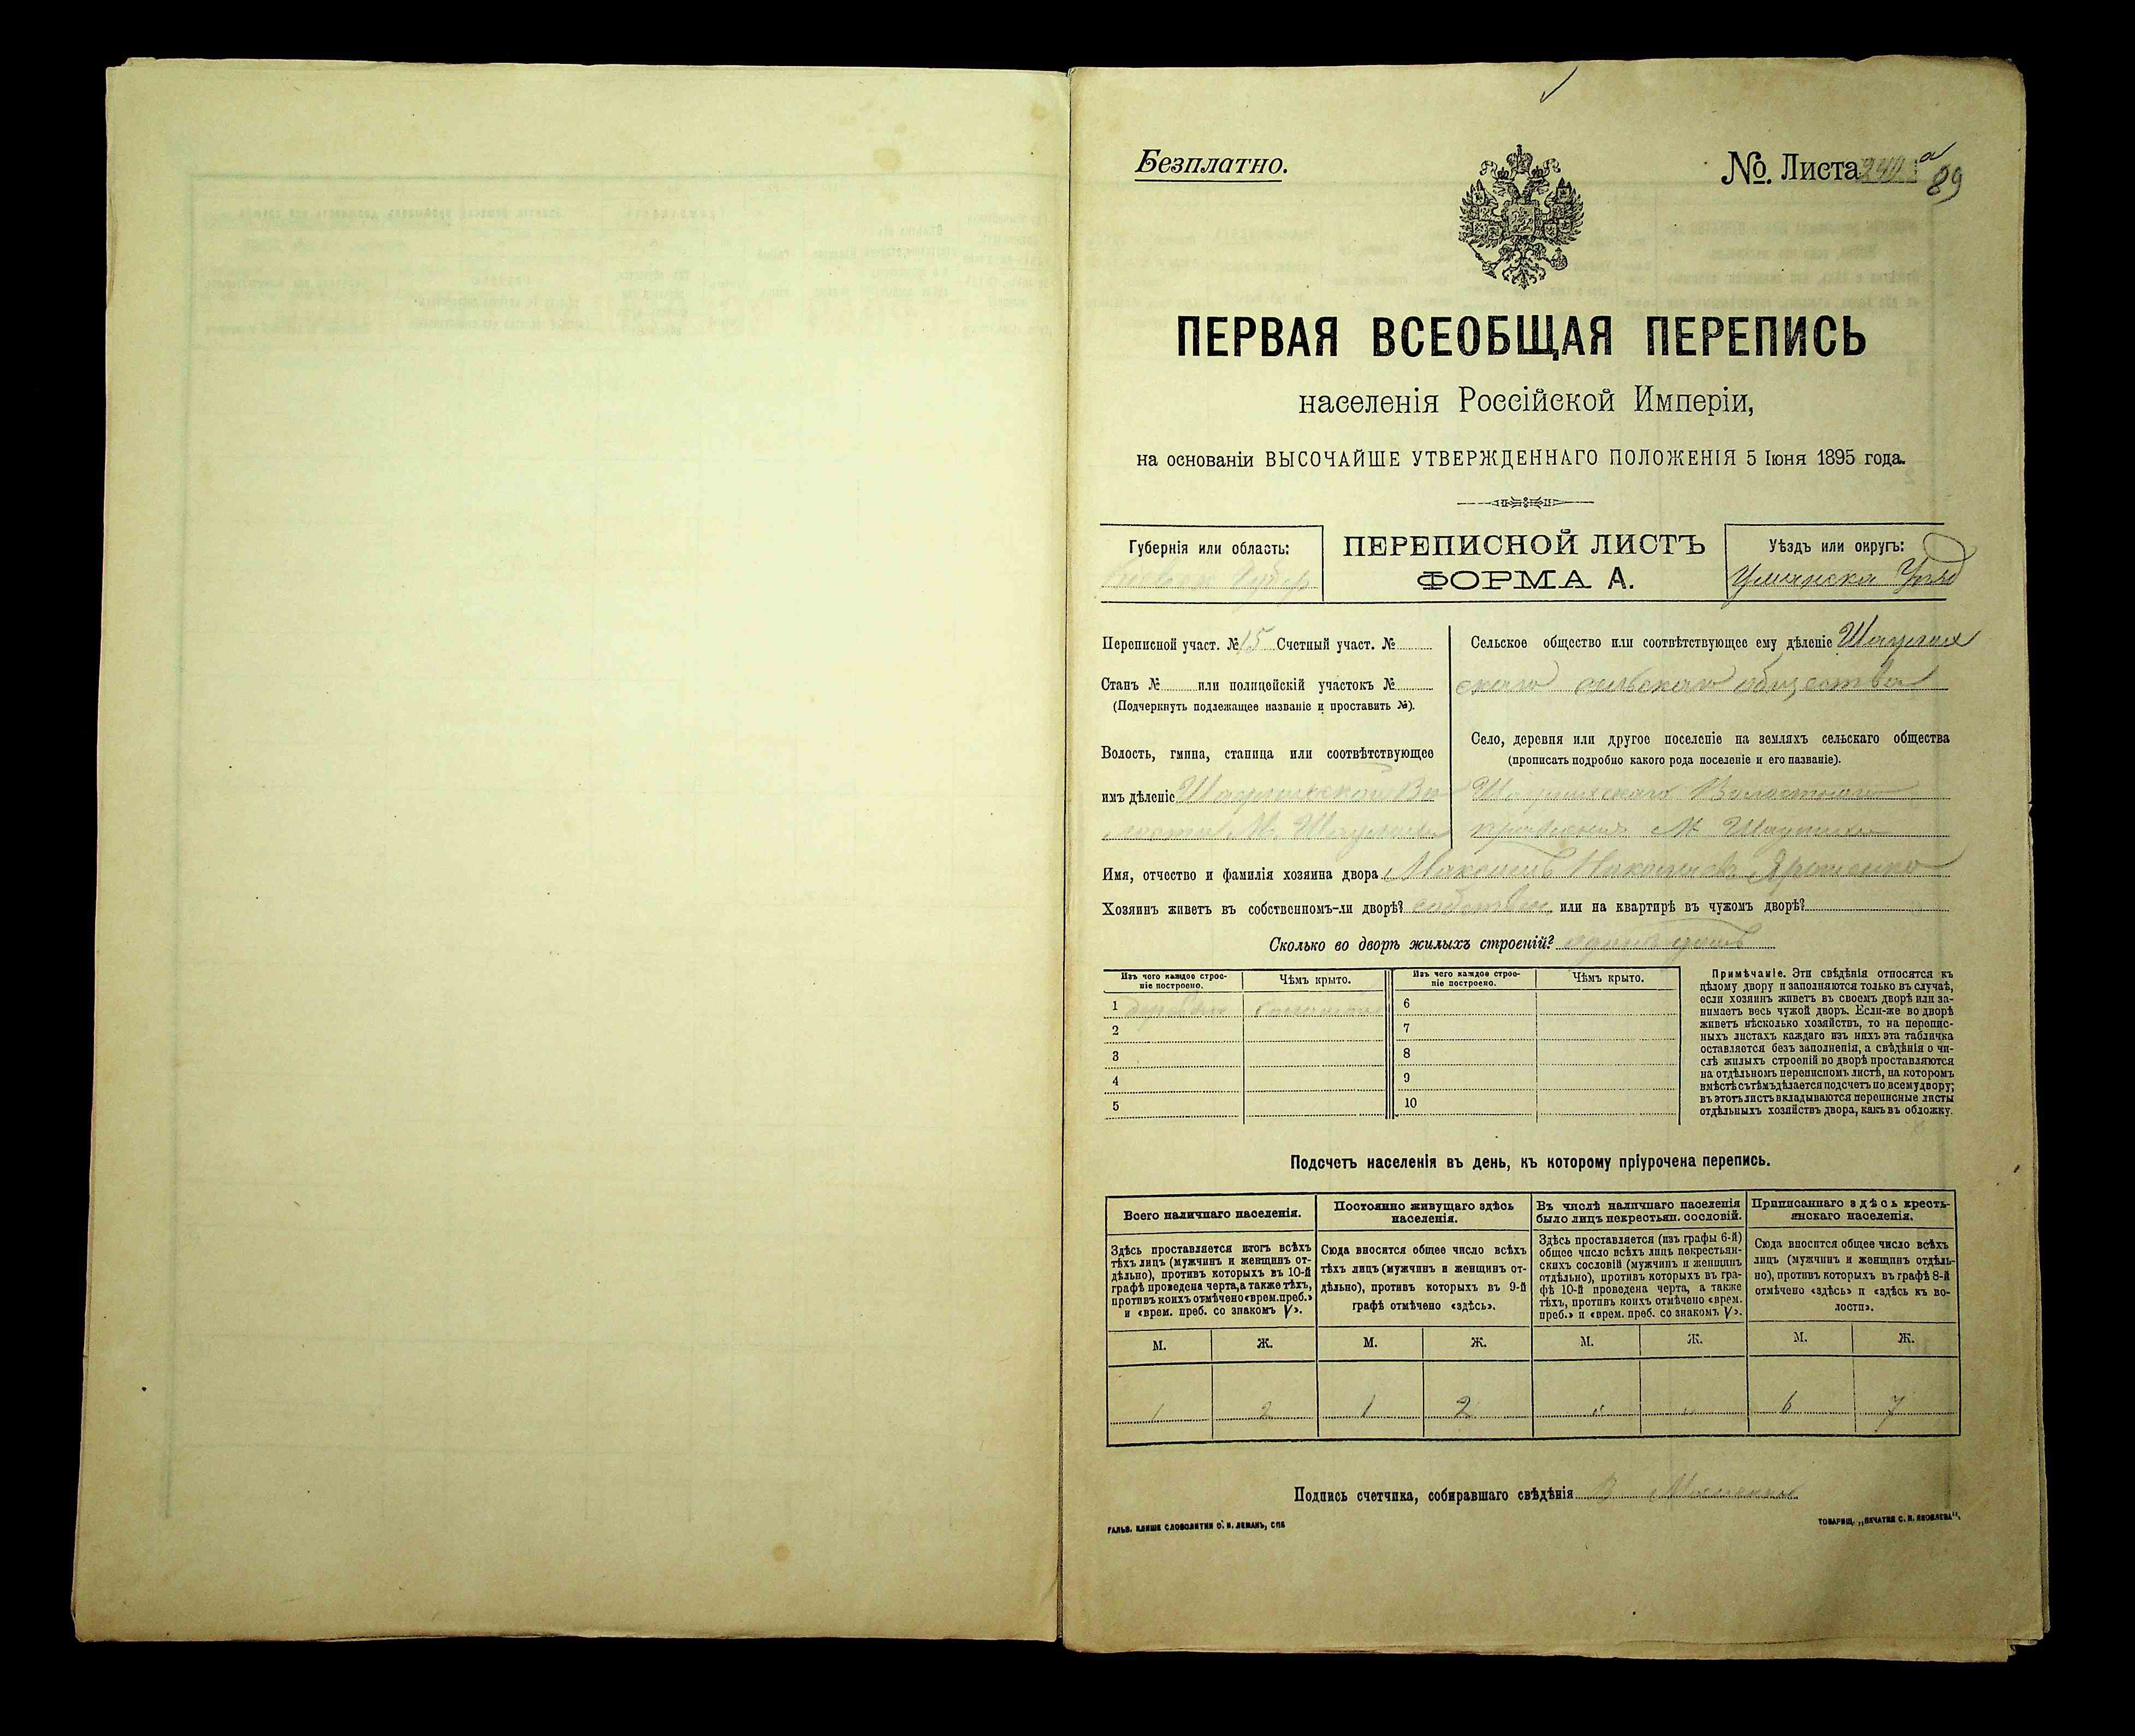 Безплатно.
№ Листа 89
ПЕРВАЯ ВСЕОБЩАЯ ПЕРЕПИСЬ
населенія Россійской Имперіи,
на основаніи ВЫСОЧАЙШЕ УТВЕРЖДЕННАГО ПОЛОЖЕНІЯ 5 Іюня 1895 года.
Губернія или область:
ПЕРЕПИСНОЙ ЛИСТЪ
ФОРМА А.
Уѣздъ или округъ:
Уманска Уѣзд
Переписной участ. № 15 Счетный участ. №
Станъ № или полицейскій участокъ №
(Подчеркнуть подлежащее названіе и проставить №).
Волость, гмина, станица или соотвѣтствующее
имъ дѣленіе
Сельское общество или соотвѣтствующее ему дѣленіе
скаго сельскаго общества
Село, деревня или другое поселеніе на земляхъ сельскаго общества
(прописать подробно какого рода поселеніе и его названіе).
Имя, отчество и фамилія хозяина двора
Хозяинъ живетъ въ собственномъ-ли дворѣ? или на квартирѣ въ чужомъ дворѣ?
Сколько во дворѣ жилыхъ строеній?
Изъ чего каждое строе-
ніе построено.
Чѣмъ крыто.
1
2
3
4
5
Изъ чего каждое строе-
ніе построено.
Чѣмъ крыто.
6
7
8
9
10
Примѣчаніе. Эти свѣдѣнія относятся къ
цѣлому двору и заполняются только въ случаѣ,
если хозяинъ живетъ въ своемъ дворѣ или за-
нимаетъ весь чужой дворъ. Если-же во дворѣ
живетъ нѣсколько хозяйствъ, то на перепис-
ныхъ листахъ каждаго изъ нихъ эта табличка
оставляется безъ заполненія, а свѣдѣнія о чи-
слѣ жилыхъ строеній во дворѣ проставляются
на отдѣльномъ переписномъ листѣ, на которомъ
вмѣстѣ съ тѣмъ дѣлается подсчетъ по всему двору;
въ этотъ листъ вкладываются переписные листы
отдѣльныхъ хозяйствъ двора, какъ въ обложку.
Подсчетъ населенія въ день, къ которому пріурочена перепись.
Всего наличнаго населенія.
Здѣсь проставляется итогъ всѣхъ
тѣхъ лицъ (мужчинъ и женщинъ от-
дѣльно), противъ которыхъ въ 10-й
графѣ проведена черта, а также тѣхъ,
противъ коихъ отмѣчено «врем. преб.»
и «врем. преб. со знакомъ V».
М. Ж.
1 2
Постоянно живущаго здѣсь
населенія.
Сюда вносится общее число всѣхъ
тѣхъ лицъ (мужчинъ и женщинъ от-
дѣльно), противъ которыхъ въ 9-й
графѣ отмѣчено «здѣсь».
М. Ж.
1 2
Въ числѣ наличнаго населенія
было лицъ некрестьян. сословій.
Здѣсь проставляется (изъ графы 6-й)
общее число всѣхъ лицъ некрестьян-
скихъ сословій (мужчинъ и женщинъ
отдѣльно), противъ которыхъ въ гра-
фѣ 10-й проведена черта, а также
тѣхъ, противъ коихъ отмѣчено «врем.
преб.» и «врем. преб. со знакомъ V».
М. Ж.
" "
Приписаннаго здѣсь кресть-
янскаго населенія.
Сюда вносится общее число всѣхъ
лицъ (мужчинъ и женщинъ отдѣль-
но), противъ которыхъ въ графѣ 8-й
отмѣчено «здѣсь» и «здѣсь къ во-
лости».
М. Ж.
6 7
Подпись счетчика, собиравшаго свѣдѣнія
ГАЛЬВ. КЛИШЕ СЛОВОЛИТНИ О. И. ЛЕМАНЪ, СПБ
ТОВАРИЩ. „ПЕЧАТНЯ С. П. ЯКОВЛЕВА".